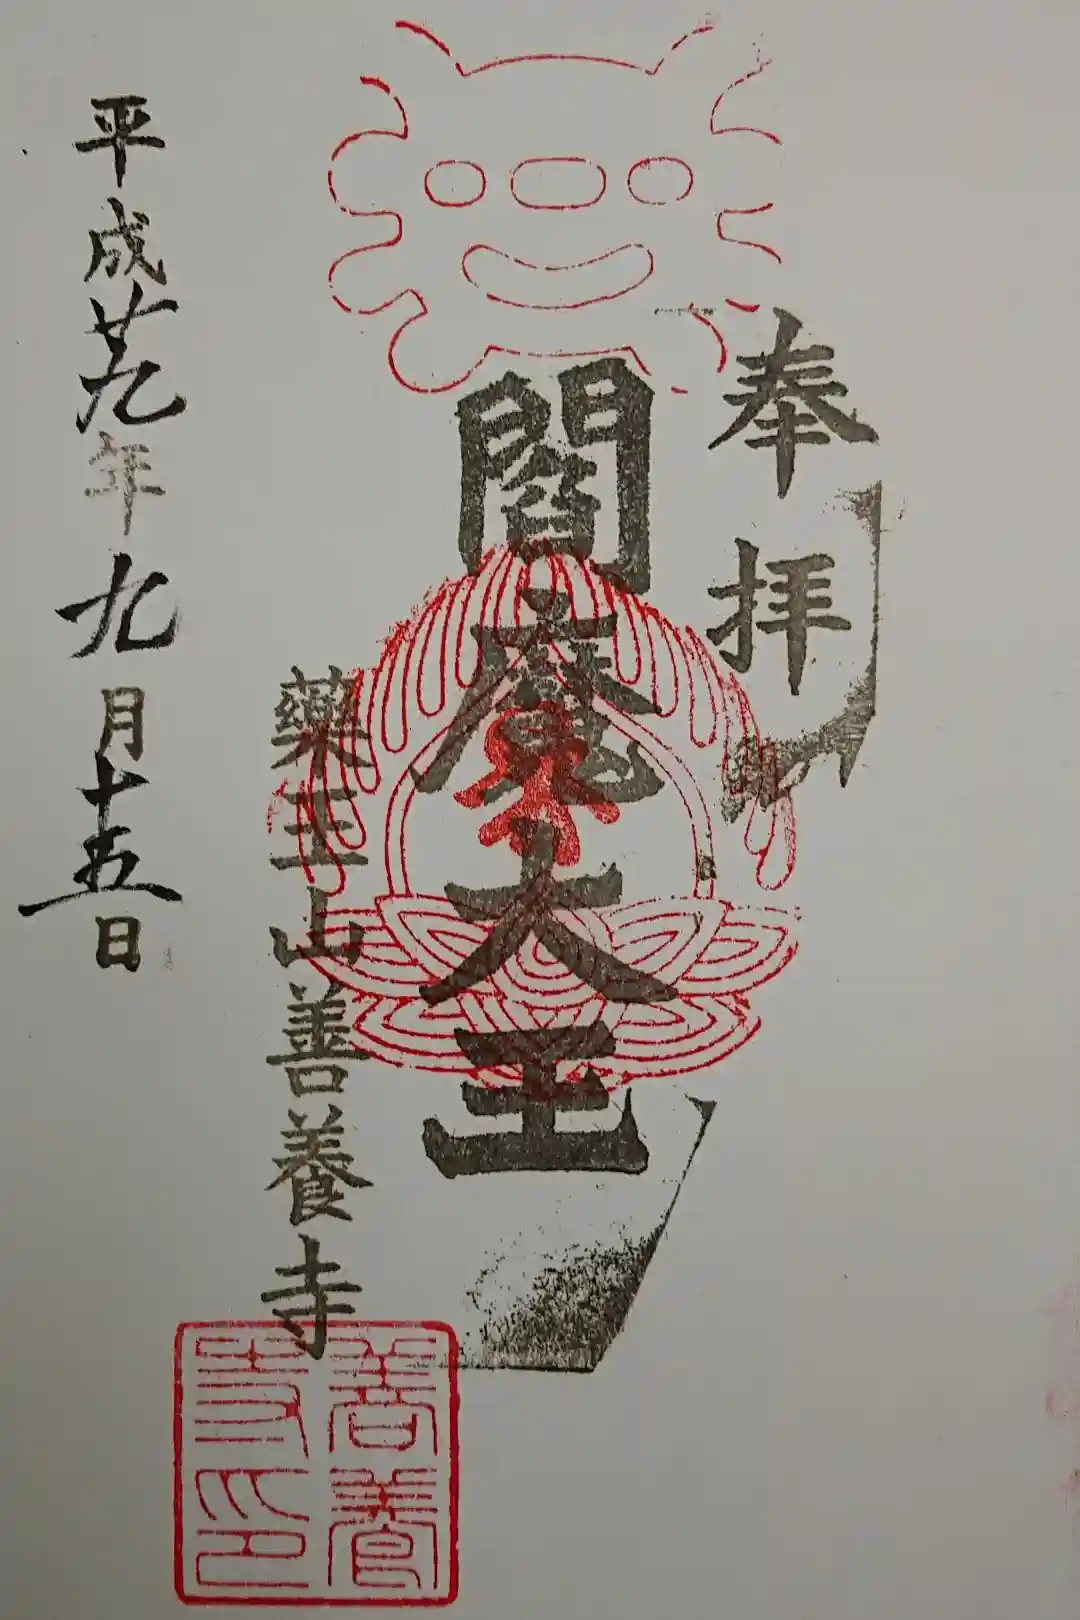 奉拝
閻魔大王
藥王山善養寺
平成廿九年九月十五日
善養
寺印